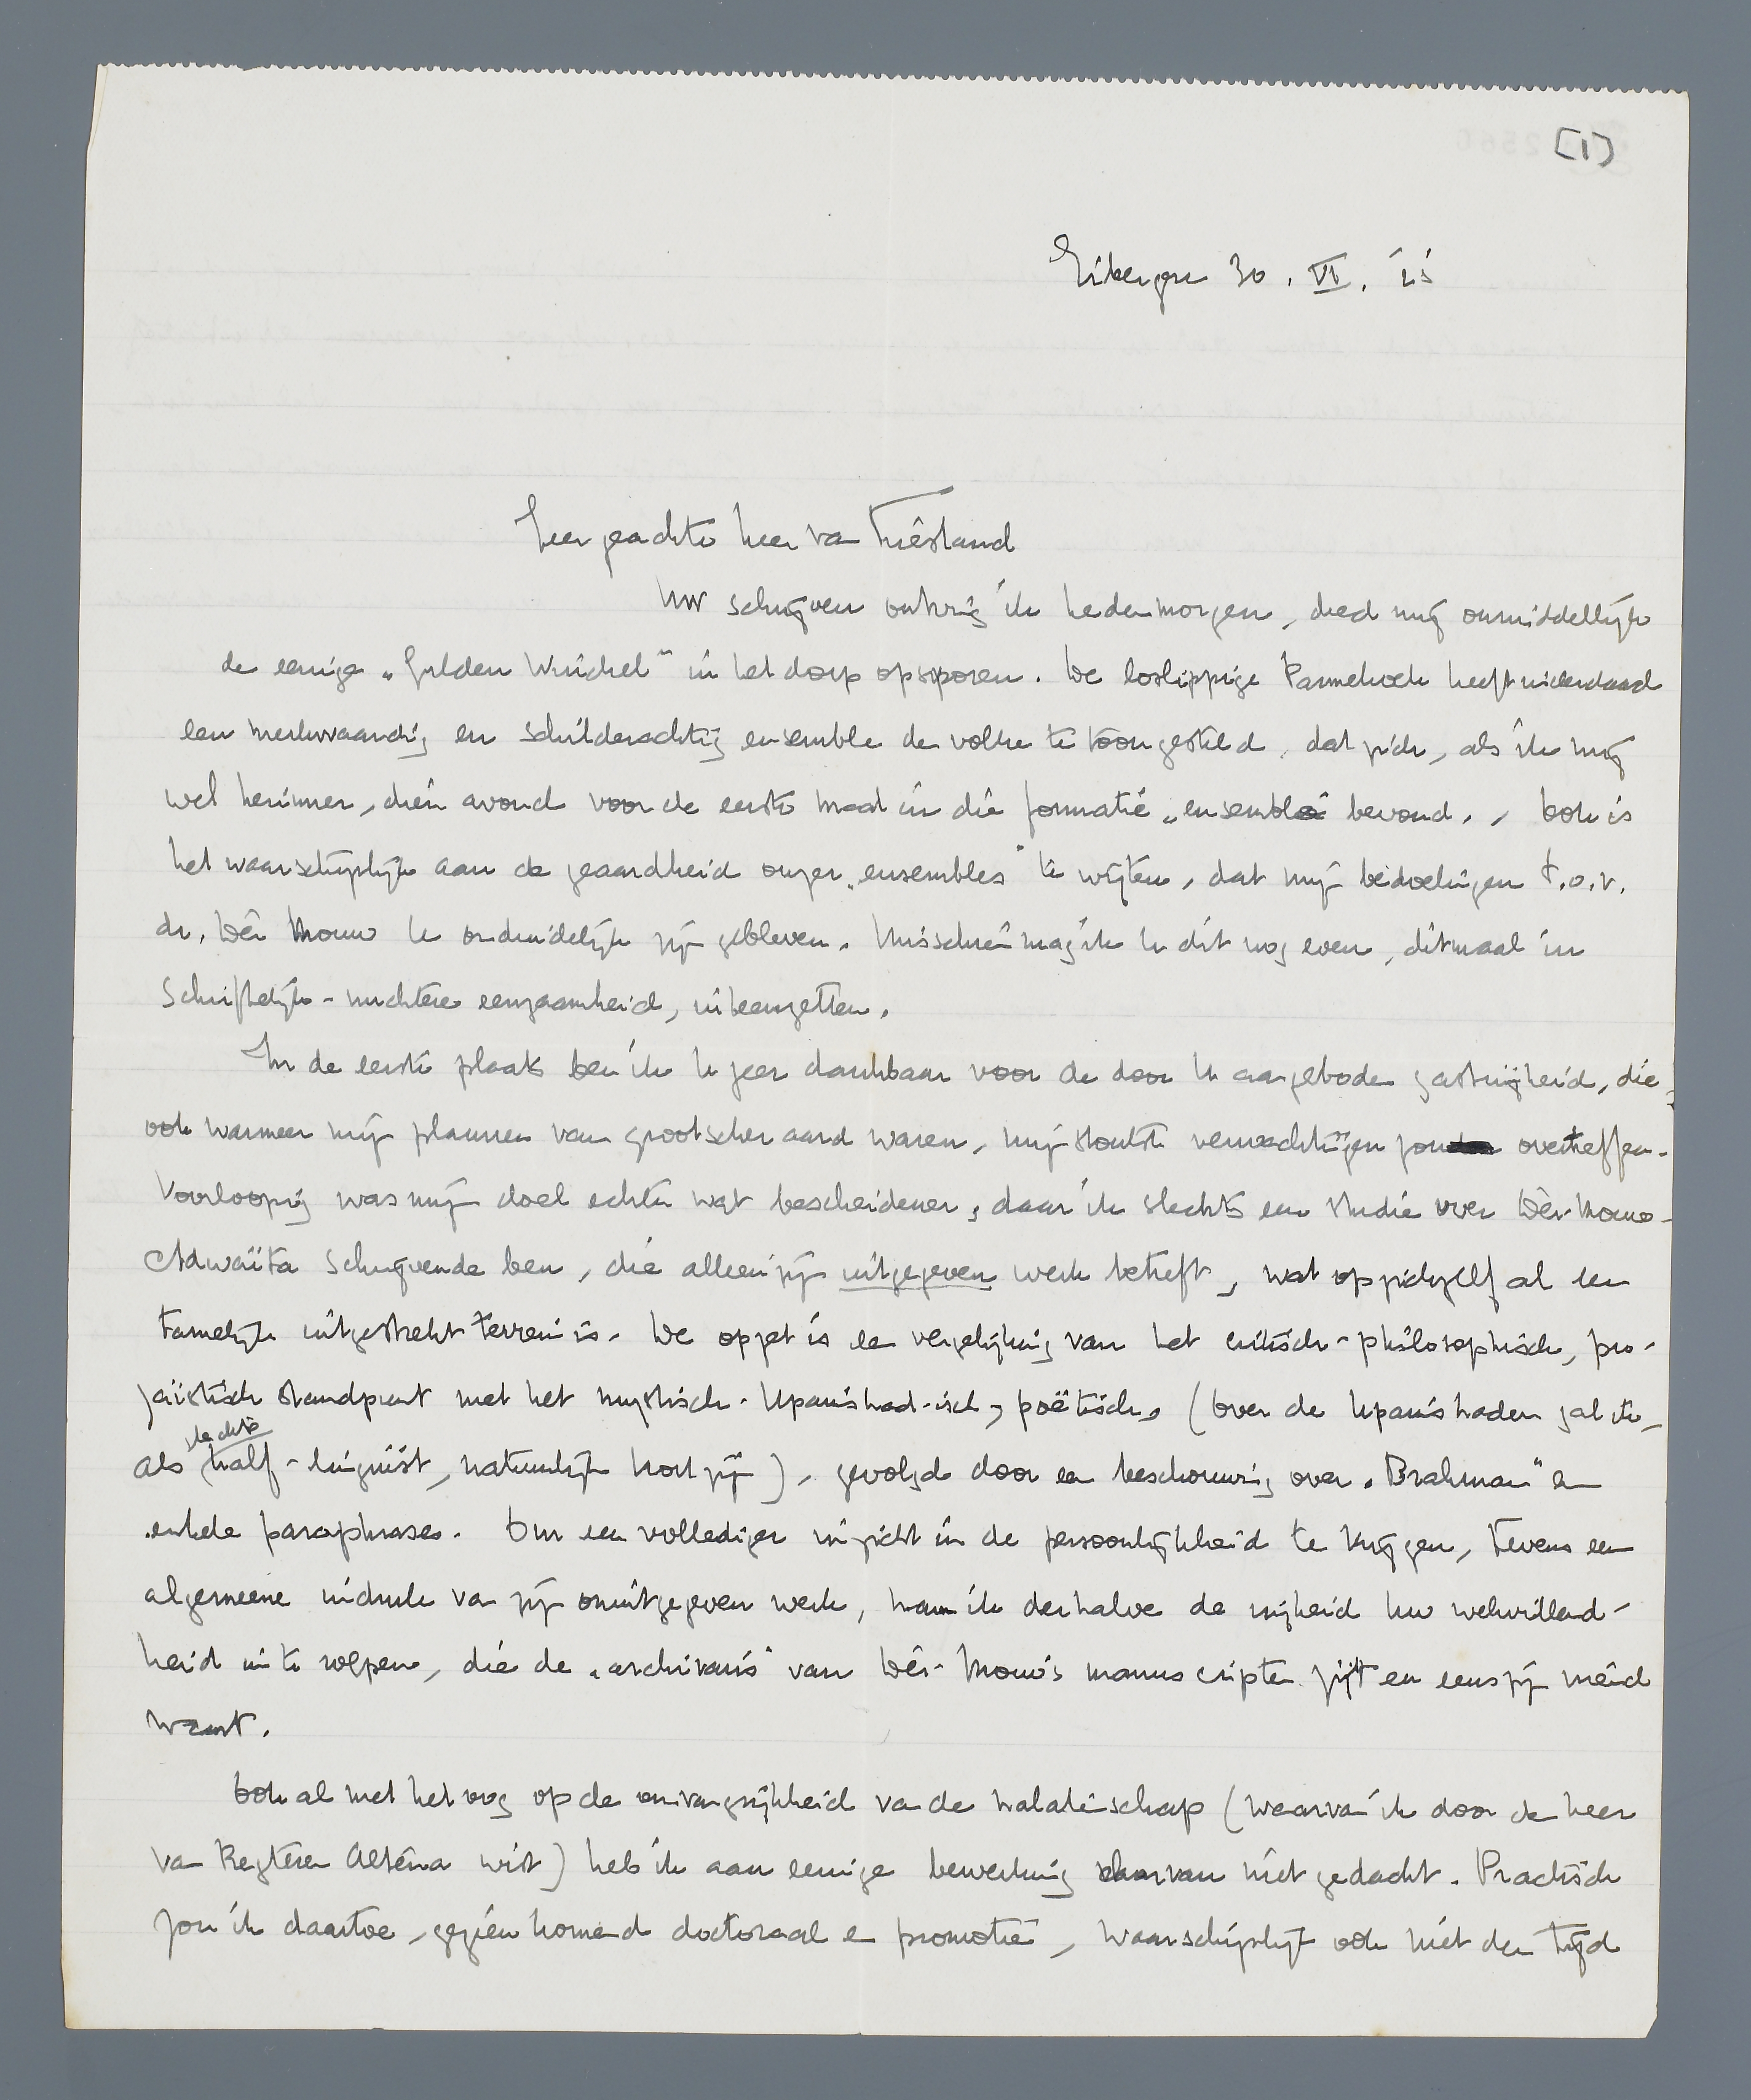 [1]
Eibergen 30. VI.
Zeer geachte heer van Vriesland
Uw schrijven ontving ik hedenmorgen, deed mij onmiddellijk
de eenige „Gulden Winckel" in het dorp opsporen. De loslippige Pannekoek heeft inderdaad
een merkwaardig en schilderachtig ensemble den volke te toon gesteld, dat zich, als ik mij
wel herinner, dien avond voor de eerste maal in die formatie „ensemble" bevond. Ook is
het waarschijnlijk aan de geaardheid onzer „ensembles" te wijten, dat mijn bedoelingen t.o.v.
dr. Dèr Mouw U onduidelijk zijn gebleven. Misschien mag ik U dit nog even, ditmaal in
schriftelijk-nuchtere eenzaamheid, uiteenzetten.
In de eerste plaats ben ik U zeer dankbaar voor de door U aangeboden gastvrijheid, die,
ook wanneer mijn plannen van grootscher aard waren, mijn stoutste verwachtingen zou overtreffen.
Voorloopig was mijn doel echter wat bescheidener, daar ik slechts een studie over Dèr-Mouw-
Adwaita schrijvende ben, die alleen zijn uitgegeven werk betreft, wat op zichzelf al een
tamelijk uitgestrekt terrein is. De opzet is een vergelijking van het critisch-philosophisch, pro-
zaïstisch standpunt met het mystisch-Upanishad-isch, poëtische (over de Upanishaden zal ik,
als slechts half-linguist, natuurlijk kort zijn), gevolgd door een beschouwing over „Brahman" en
enkele paraphrases. Om een vollediger inzicht in de persoonlijkheid te krijgen, tevens een
algemeene indruk van zijn onuitgegeven werk, nam ik derhalve de vrijheid Uw welwillend-
heid in te roepen, die de „archivaris" van Dèr-Mouw's manuscripten zijt en eens zijn vriend
waart.
Ook al met het oog op de omvangrijkheid van de nalatenschap (waarvan ik door den heer
van Regteren Altena wist) heb ik aan eenige bewerking daarvan niet gedacht. Practisch
zou ik daartoe, gezien komend doctoraal en promotie, waarschijnlijk ook niet den tijd